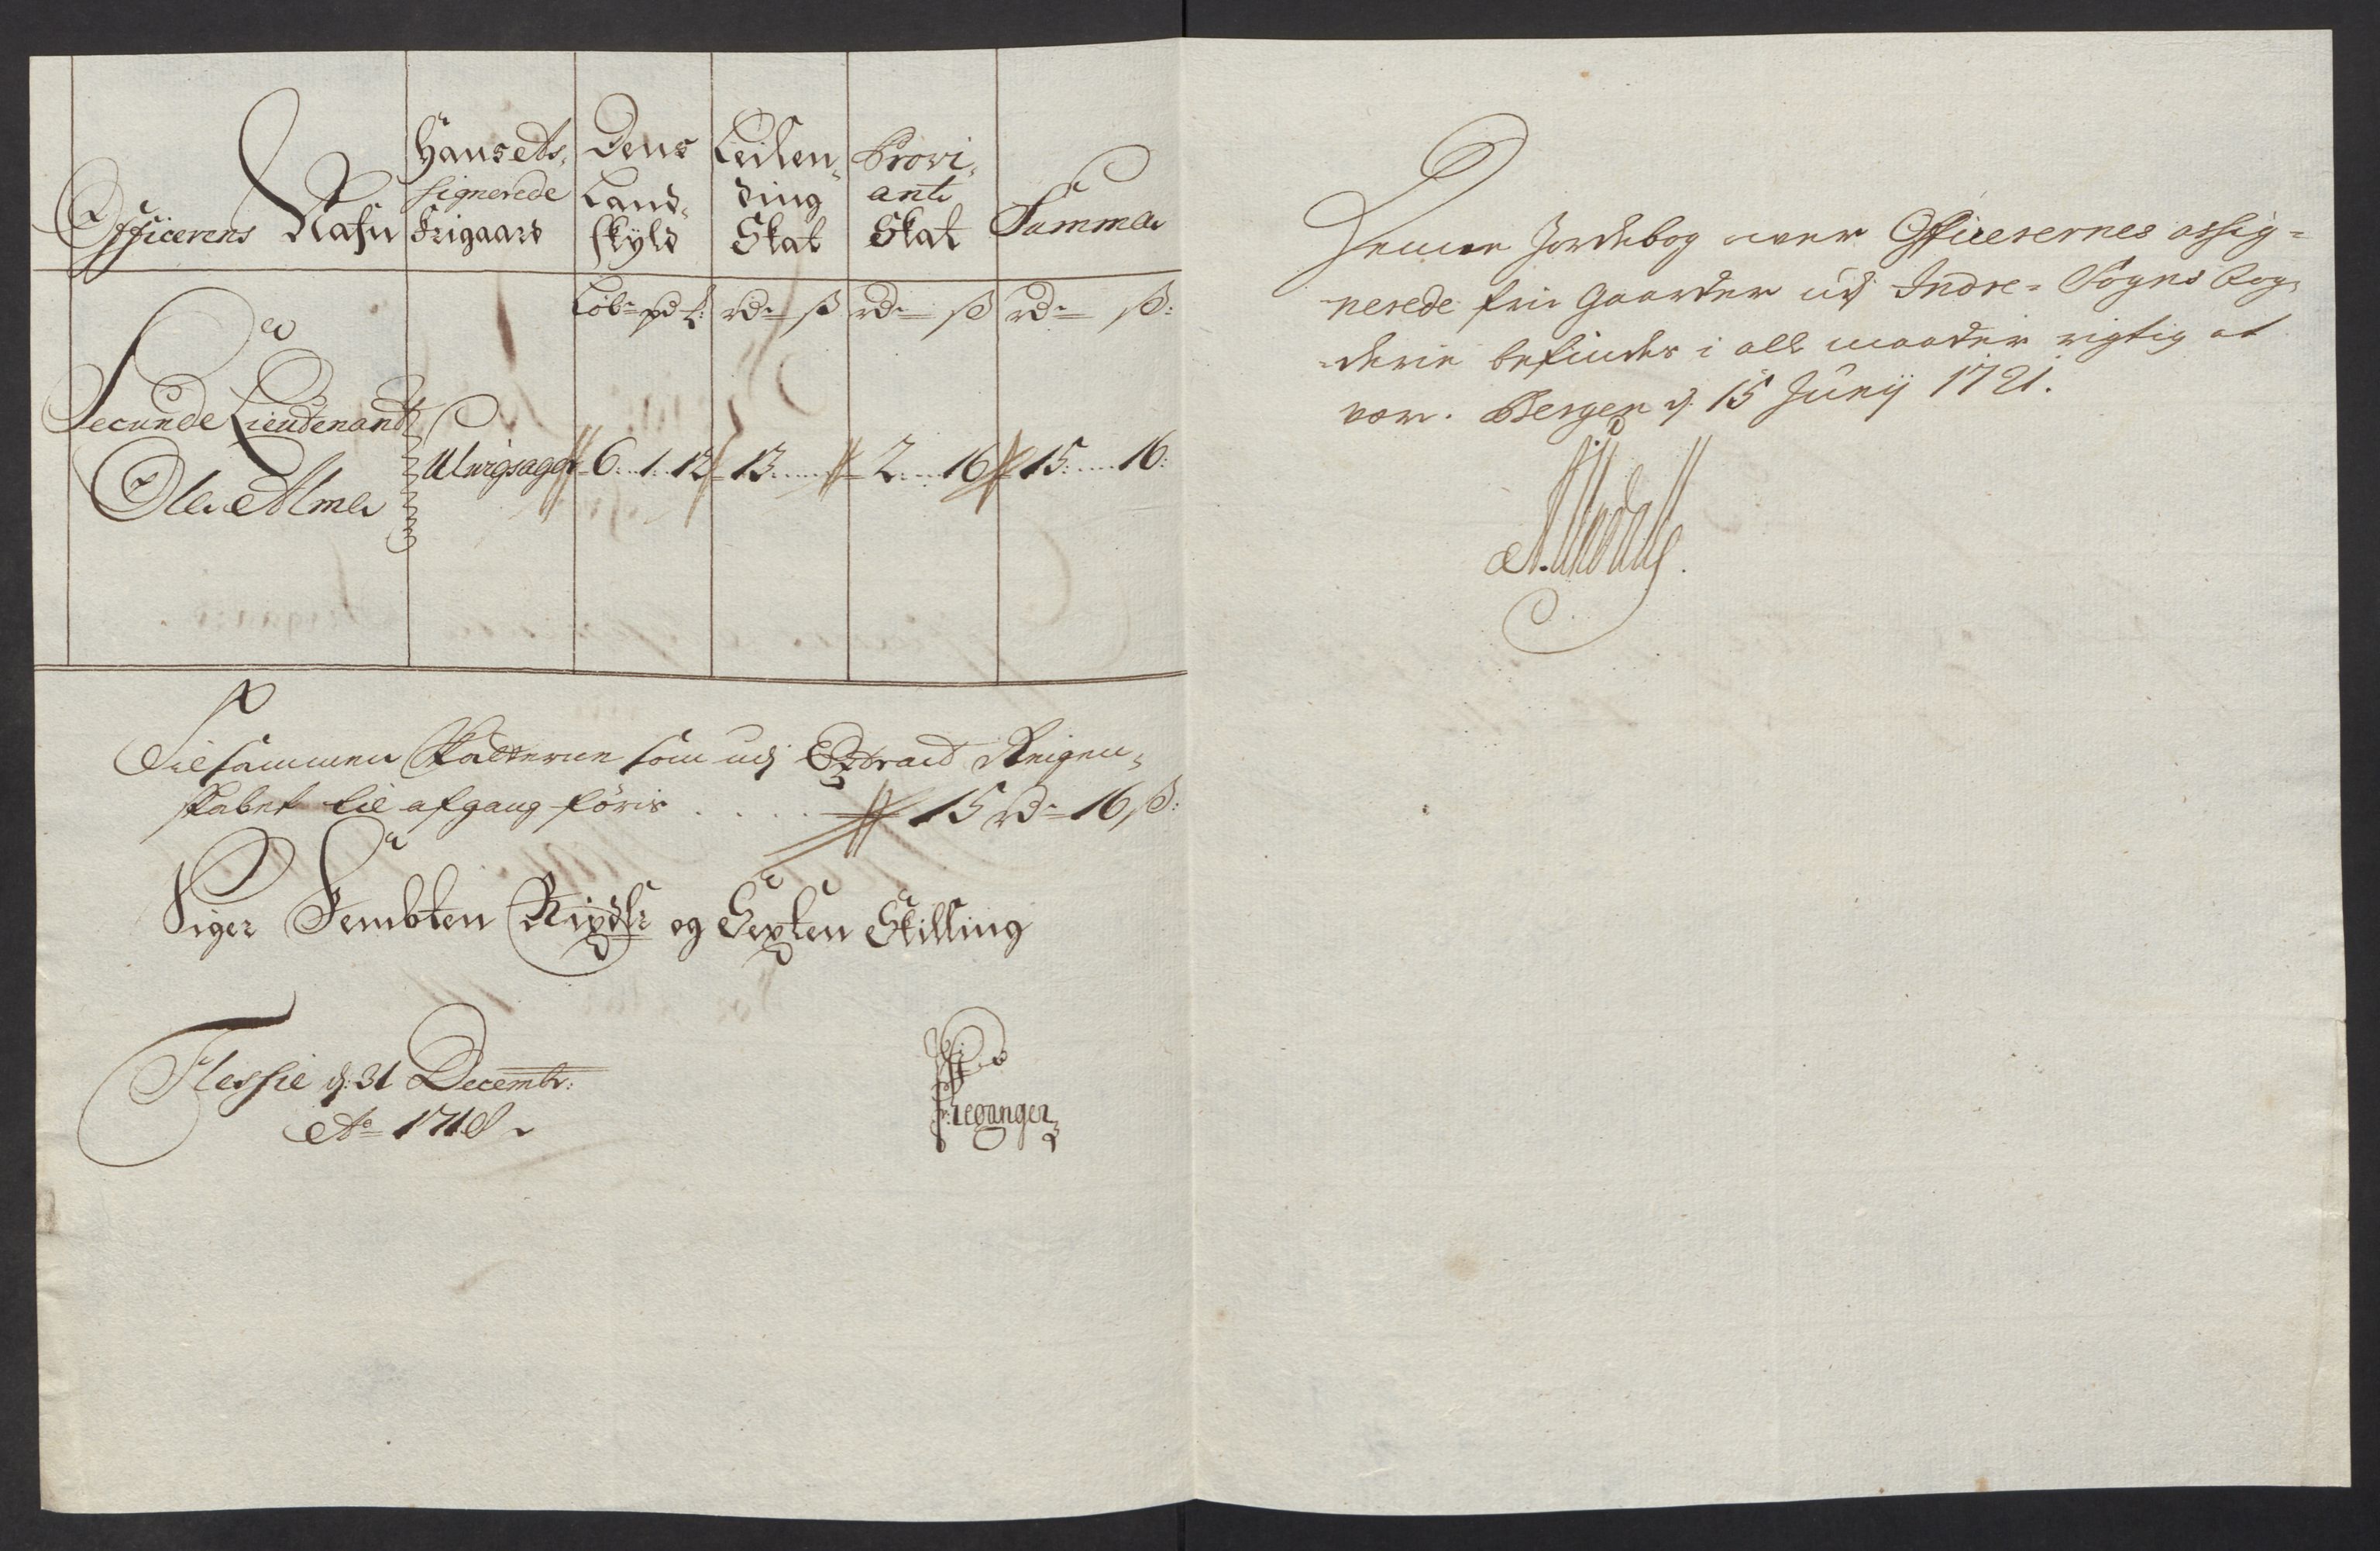 Officerens Nafn | Hans As¸ signerede Frigaard | Dens Land¸ skyld | Leilen¸ ding Skat | Provi¸ ant Skat | Summa
Løb= pd ℔: | rd= ß | rd= ß | rd= ß:
Secunde Lieutenandt
Ole Alme | Ulvigsager | 6..1..12 | 13..... | 2....16 | 15:....16:
Tilsammen Skatterne som udj Extract Reigen¸
skabet til afgang føris . . . . . 15 rd= 16 ß:
Siger Fembten Rixdlr og Sexten Skilling
Flessie d: 31 Decembr:
Ao= 1718
Denne Jordebog over Officerernes assig=
nerede frie Gaarder udj Indre= Sogns Fog¸
derie befindes i alle maader rigtig at
vær. Bergen d. 15 Junij 1721.